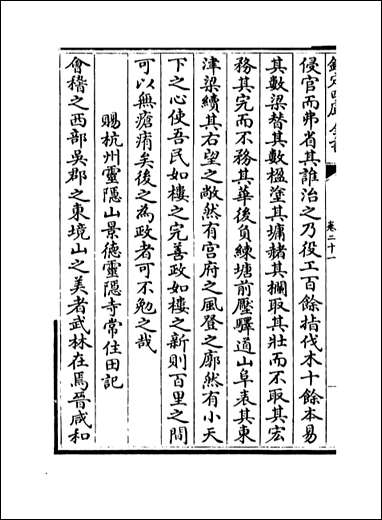 欽定四庫全書
卷二十一
侵官而弗省其誰治之乃役工百餘指伐木十餘本易
其數梁替其數楹塗其墉赭其欄取其壯而不取其宏
務其完而不務其華後負練塘前壓驛道山阜袤其東
津梁續其右望之敞然有宮府之風登之廓然有小天
下之心使吾民如樓之完善政如樓之新則百里之間
可以無瘡痏矣後之為政者可不勉之哉
賜杭州靈隱山景德靈隱寺常住田記
會稽之西部吳郡之東境山之美者武林在焉晉咸和